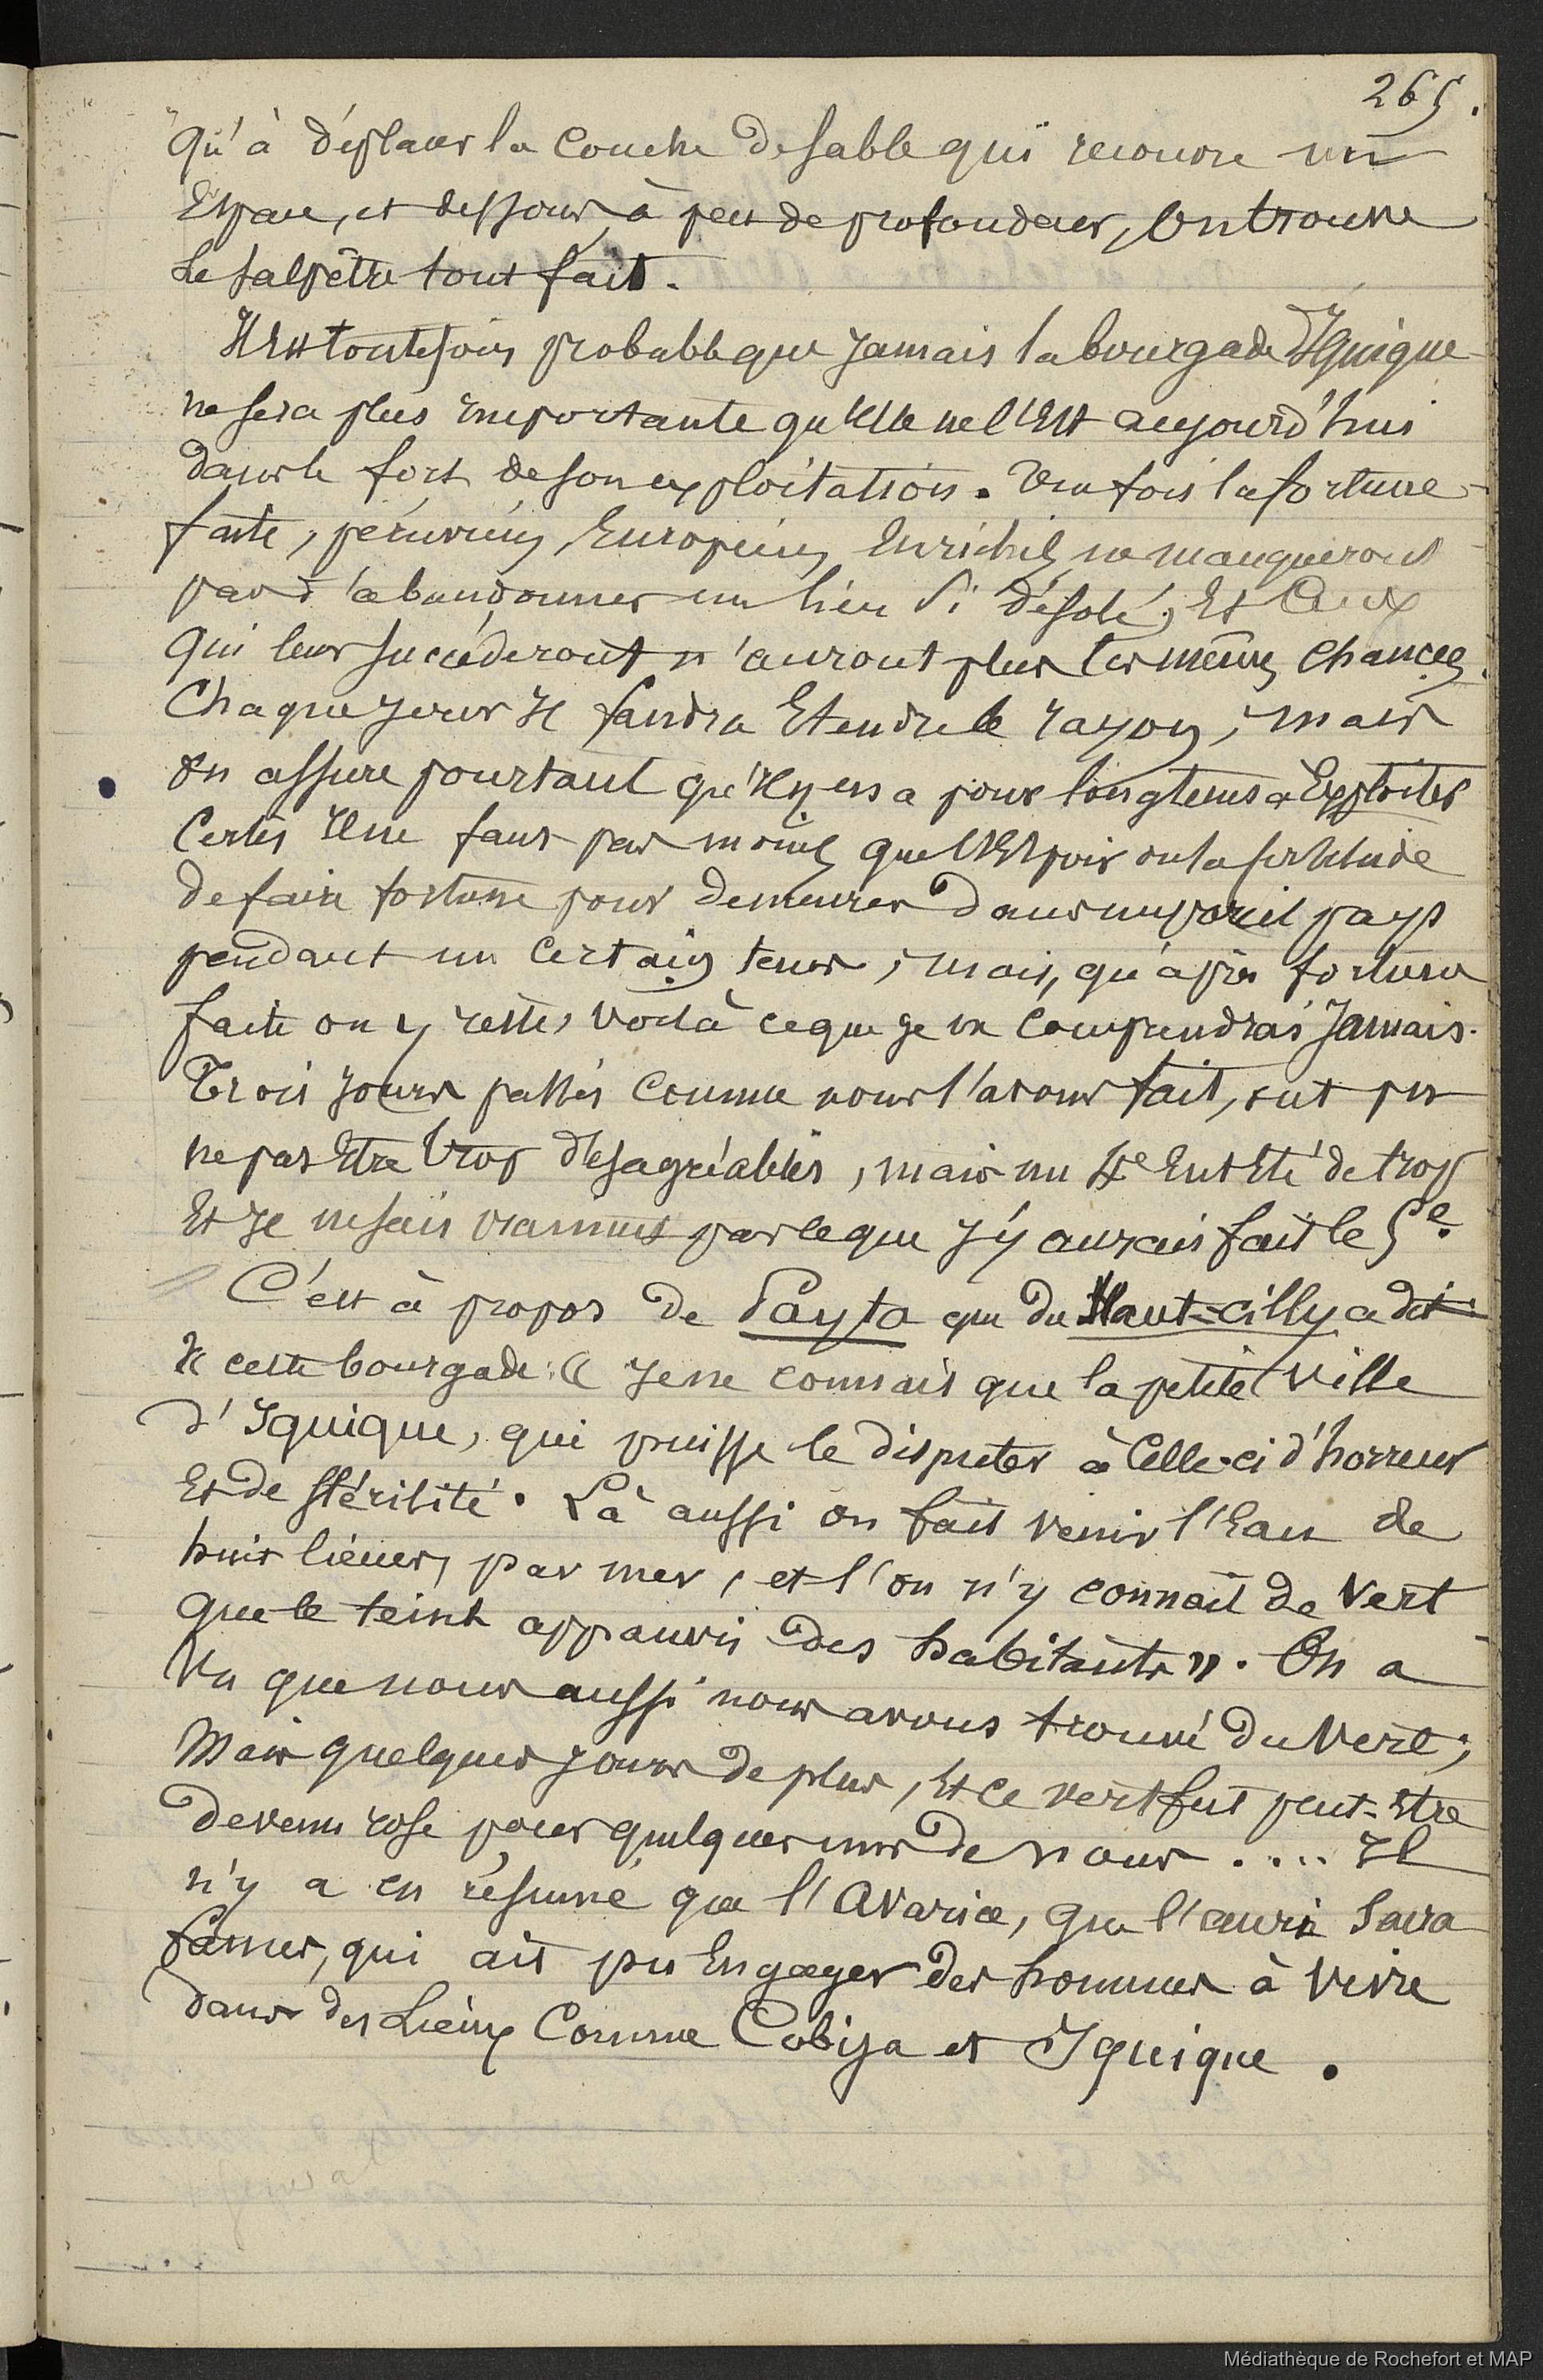 265.
qu'à déplacer la couche de sable qui recouvre un
Espace, et dessous, à peu de profondeur, on trouve
le salpêtre tout fait.
Il est toutefois probable que jamais la bourgade d'Iquique
ne sera plus importante qu'elle ne l'est aujourd'hui
dans le fort de son exploitation. Une fois la fortune
faite, péruviens, Européens enrichis, ne manqueront
pas d'abandonner un lieu si désolé, et ceux
qui leur succéderont n'auront plus les mêmes chances.
Chaque jour il faudra Etendre le rayon, mais
on assure pourtant qu'il y en a pour longtems à Exploiter
Certes Il ne faut pas moins que l'Espoir ou la certitude
de faire fortune pour demeurer dans un pareil pays
pendant un certain tems, mais, qu'après fortune
faite on y reste, voilà ce que je ne comprendrai Jamais.
Trois jours passés comme nous l'avons fait, ont pu
ne pas Etre trop désagréables, mais un 4e Eut Eté de trop
Et Je ne sais vraiment pas ce que J'y aurais fait le 5e.
C'est à propos de Payta que du Haut-cilly a dit
de cette bourgade : « Je ne connais que la petite ville
d'Iquique, qui puisse le disputer à Celle-ci d'horreur
Et de stérilité. Là aussi on fait venir l'Eau de
huit lieues, par mer, et l'on n'y connait de vert
que le teint appauvri des habitants ». On a
vu que nous aussi nous avons trouvé du Vert ;
Mais quelques jours de plus, Et ce vert fut peut-Etre
devenu rose pour quelques uns de nous .... Il
n'y a en résumé que l'Avarice, que l'auri sacra
fames, qui ait pu Engager des hommes à vivre
dans des Lieux Comme Cobija et Iquique.
Médiathèque de Rochefort et MAP